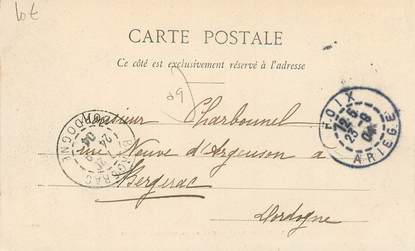 Lot
CARTE POSTALE
Ce côté est exclusivement réservé à l'adresse
Monsieur Charbonnel
rue Neuve d'Argenson à
Bergerac
Dordogne
FOIX
ARIEGE
BERGERAC
DORDOGNE